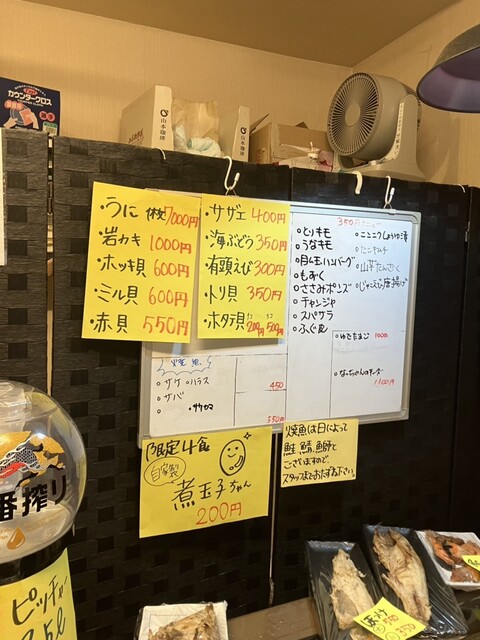 カウンタークロス
山本珈琲
山本珈琲
・うに 1枚 7000円
・岩カキ 1000円
・ホッキ貝 600円
・ミル貝 600円
・赤貝 550円
・サザエ 400円
・海ぶどう 350円
・有頭えび 300円
・トリ貝 350円
・ホタテ貝 1コ 200円 2コ 500円
350円
・とりキモ
・うなキモ
・月見ハンバーグ
・もずく
・ささみポンズ
・チャンジャ
・スパサラ
・ふぐ皮
・ニンニクしょうゆ漬
・じゃこえび唐揚げ
・ゆでたまご 100円
1100円
焼魚
・サケ ・ハラス
・サバ
・サケカマ
450
550
限定4食
自家製
煮玉子ちゃん
200円
焼魚は日によって
鮭、鯖、鰤等と
ございますので、
スタッフまでおたずね下さい。
番搾り
ピッチャー
ほっけ
550